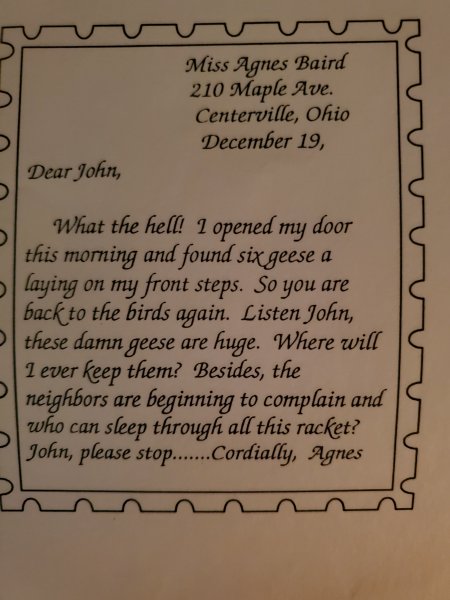 Miss Agnes Baird
210 Maple Ave.
Centerville, Ohio
December 19,
Dear John,
What the hell! I opened my door
this morning and found six geese a
laying on my front steps. So you are
back to the birds again. Listen John,
these damn geese are huge. Where will
I ever keep them? Besides, the
neighbors are beginning to complain and
who can sleep through all this racket?
John, please stop.......Cordially, Agnes